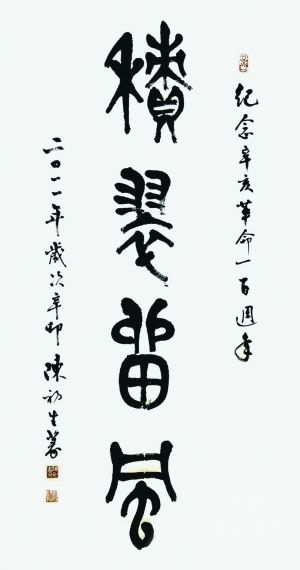 紀念辛亥革命一百週年
積翠留風
二〇一一年歲次辛卯陳初生篆